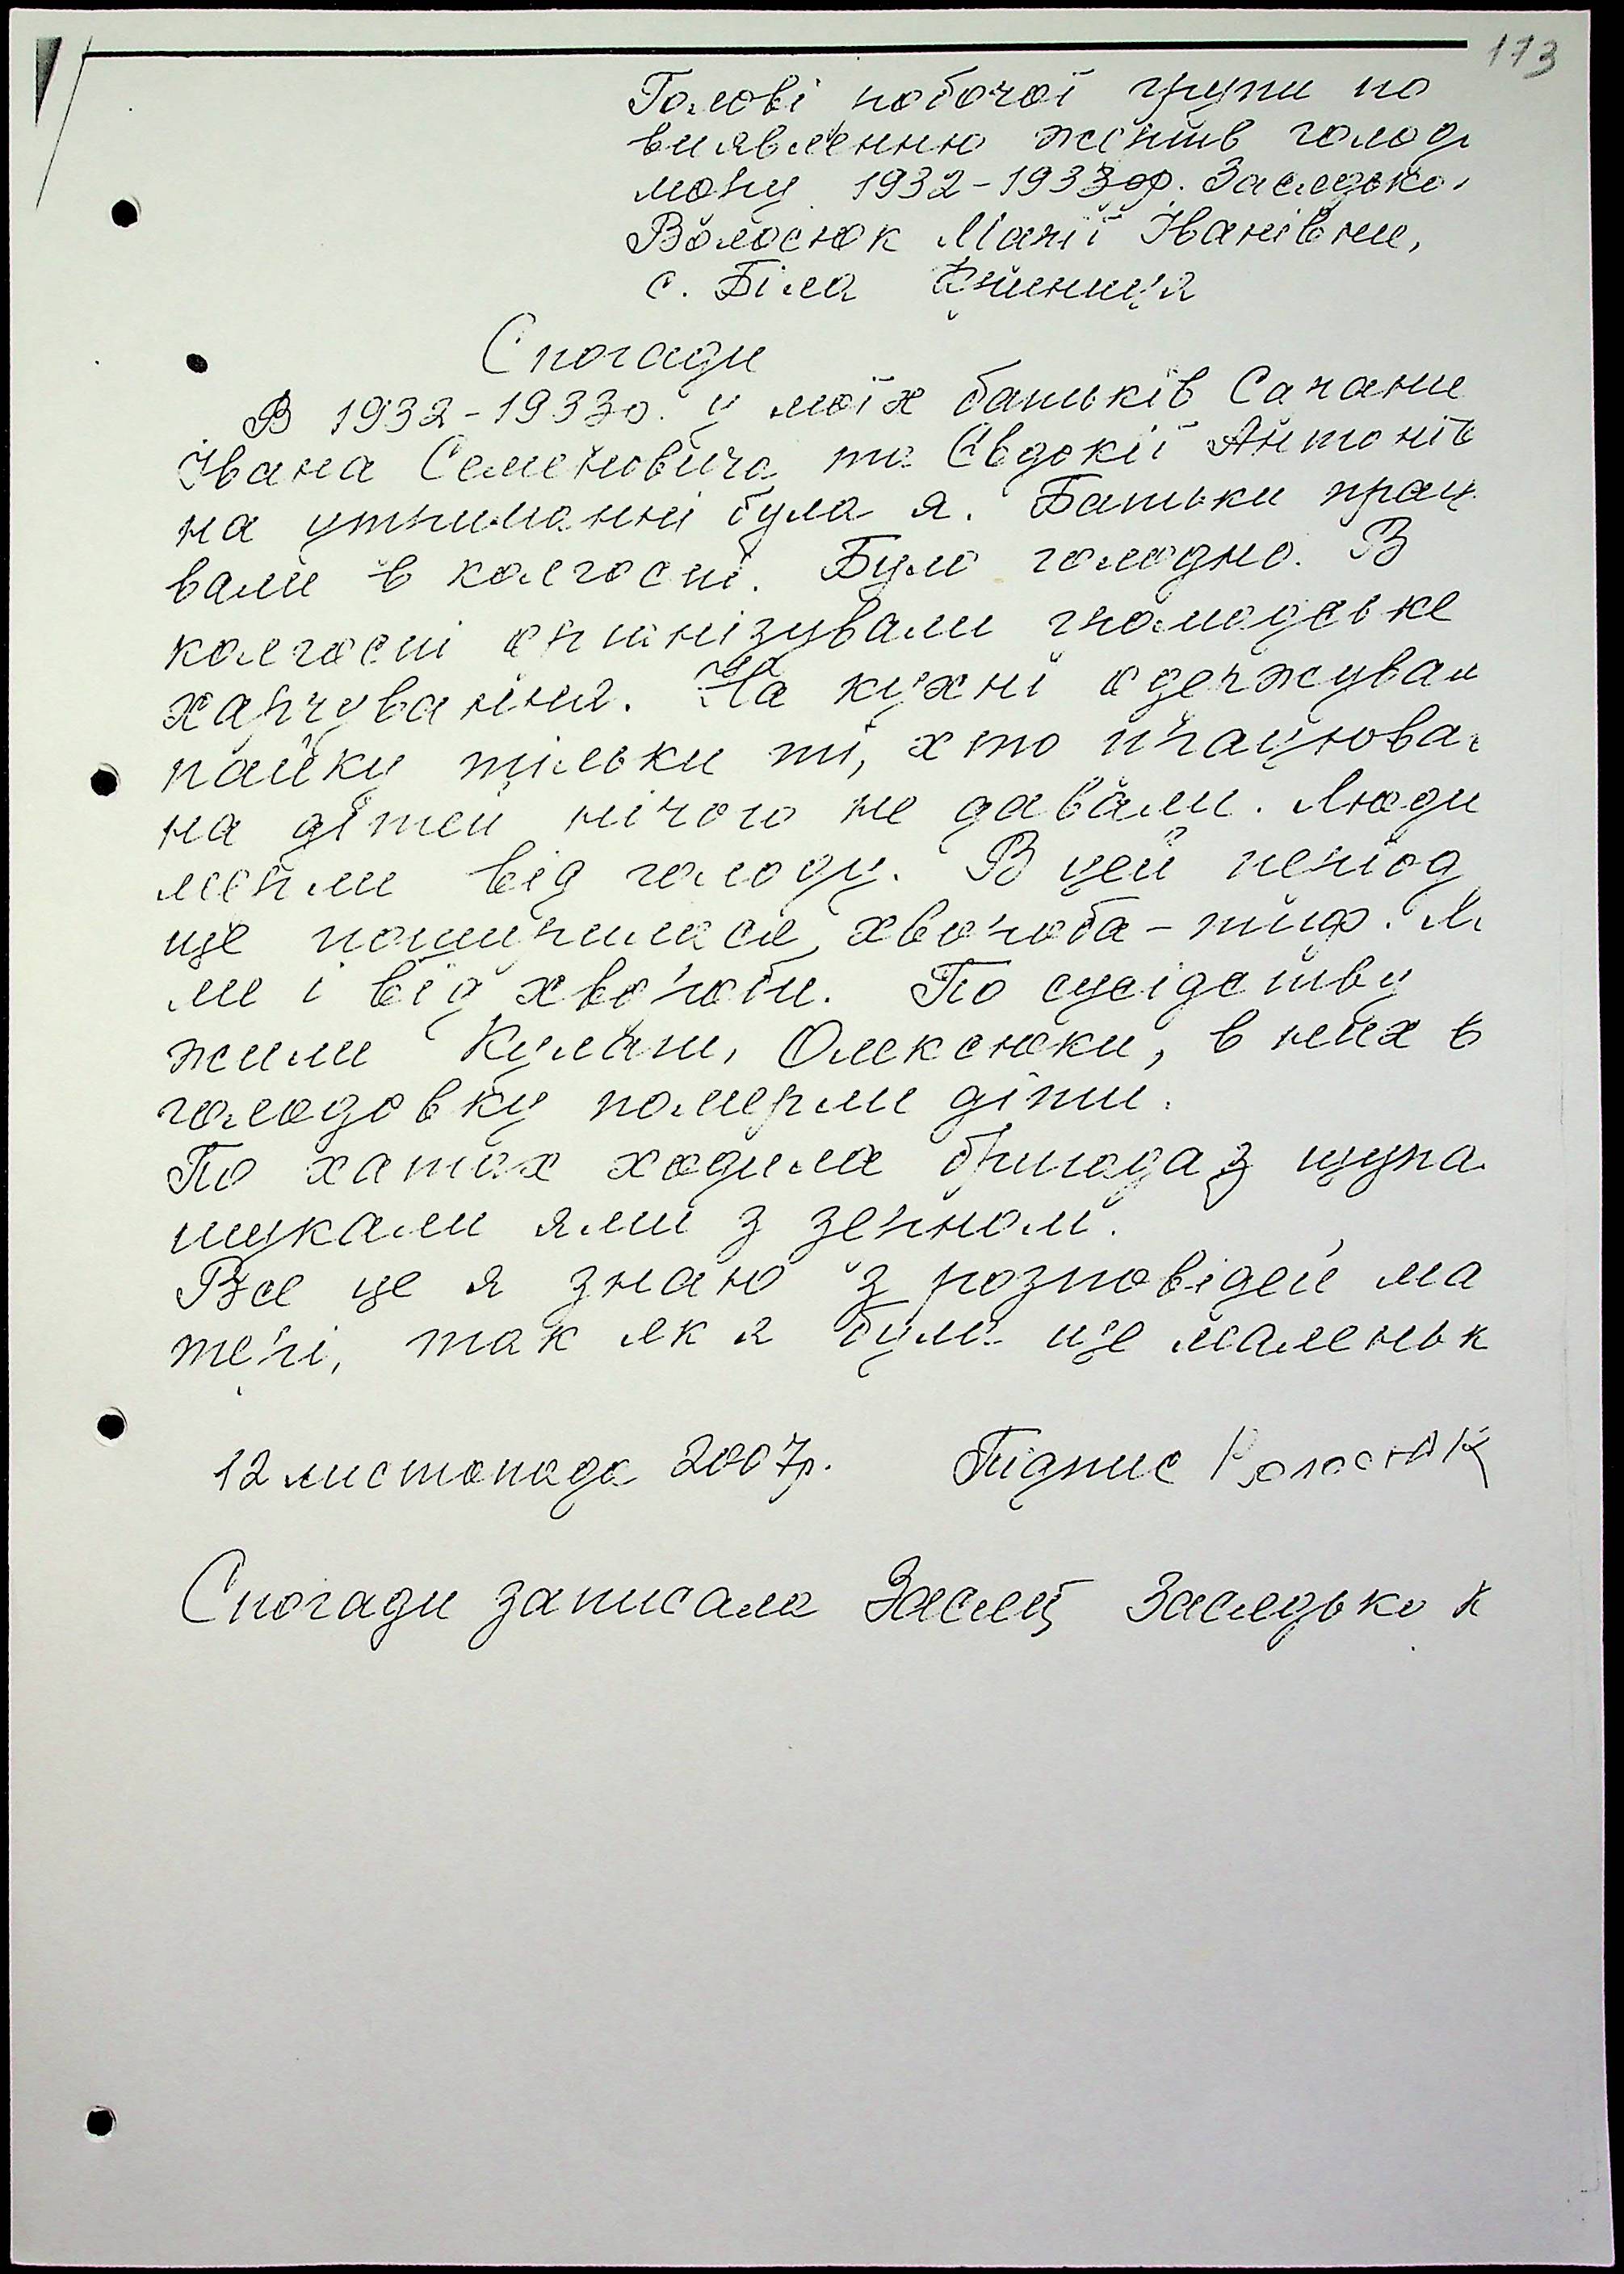 173
Голові робочої групи по
виявленню жертв голод
мору 1932-1933рр. Заследько
Волосюк Марії Іванівни,
с. Біла Криниця
Спогади
В 1932-1933р. у моїх батьків Сачани
Івана Семеновича та Євдокії Антонів
на утриманні була я. Батьки прац
вали в колгоспі. Було голодно. В
колгоспі організували громадське
харчування. На кухні одержувал
пайку тільки ті, хто працюва
на дітей нічого не давали. Люди
мерли від голоду. В цей період
ще поширилася хвороба - тиф. М
ли і від хвороби. По сусідству
жили Кулаги, Олексюки, в них в
голодовку померли діти.
По хатах ходила бригада з щупа
шукали ями з зерном.
Все це я знаю з розповідей ма
тері, так як я була ще маленьк
12 листопада 2007р. Підпис Волосюк
Спогади записала Заслед Заслєдько К